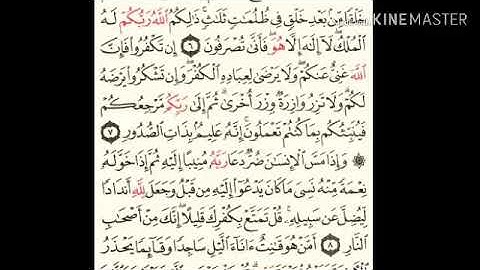 KINEMASTER
خَلْقًا مِّنۢ بَعْدِ خَلْقٍ فِى ظُلُمَٰتٍ ثَلَٰثٍ ۚ ذَٰلِكُمُ ٱللَّهُ رَبُّكُمْ لَهُ
ٱلْمُلْكُ ۖ لَآ إِلَٰهَ إِلَّا هُوَ ۖ فَأَنَّىٰ تُصْرَفُونَ ٦ إِن تَكْفُرُوا۟ فَإِنَّ
ٱللَّهَ غَنِىٌّ عَنكُمْ ۖ وَلَا يَرْضَىٰ لِعِبَادِهِ ٱلْكُفْرَ ۖ وَإِن تَشْكُرُوا۟ يَرْضَهُ
لَكُمْ ۗ وَلَا تَزِرُ وَازِرَةٌ وِزْرَ أُخْرَىٰ ۗ ثُمَّ إِلَىٰ رَبِّكُم مَّرْجِعُكُمْ
فَيُنَبِّئُكُم بِمَا كُنتُمْ تَعْمَلُونَ ۚ إِنَّهُۥ عَلِيمٌۢ بِذَاتِ ٱلصُّدُورِ ٧
۞ وَإِذَا مَسَّ ٱلْإِنسَٰنَ ضُرٌّ دَعَا رَبَّهُۥ مُنِيبًا إِلَيْهِ ثُمَّ إِذَا خَوَّلَهُۥ
نِعْمَةً مِّنْهُ نَسِىَ مَا كَانَ يَدْعُوٓا۟ إِلَيْهِ مِن قَبْلُ وَجَعَلَ لِلَّهِ أَندَادًا
لِّيُضِلَّ عَن سَبِيلِهِۦ ۚ قُلْ تَمَتَّعْ بِكُفْرِكَ قَلِيلًا ۖ إِنَّكَ مِنْ أَصْحَٰبِ
ٱلنَّارِ ٨ أَمَّنْ هُوَ قَٰنِتٌ ءَانَآءَ ٱلَّيْلِ سَاجِدًا وَقَآئِمًا يَحْذَرُ